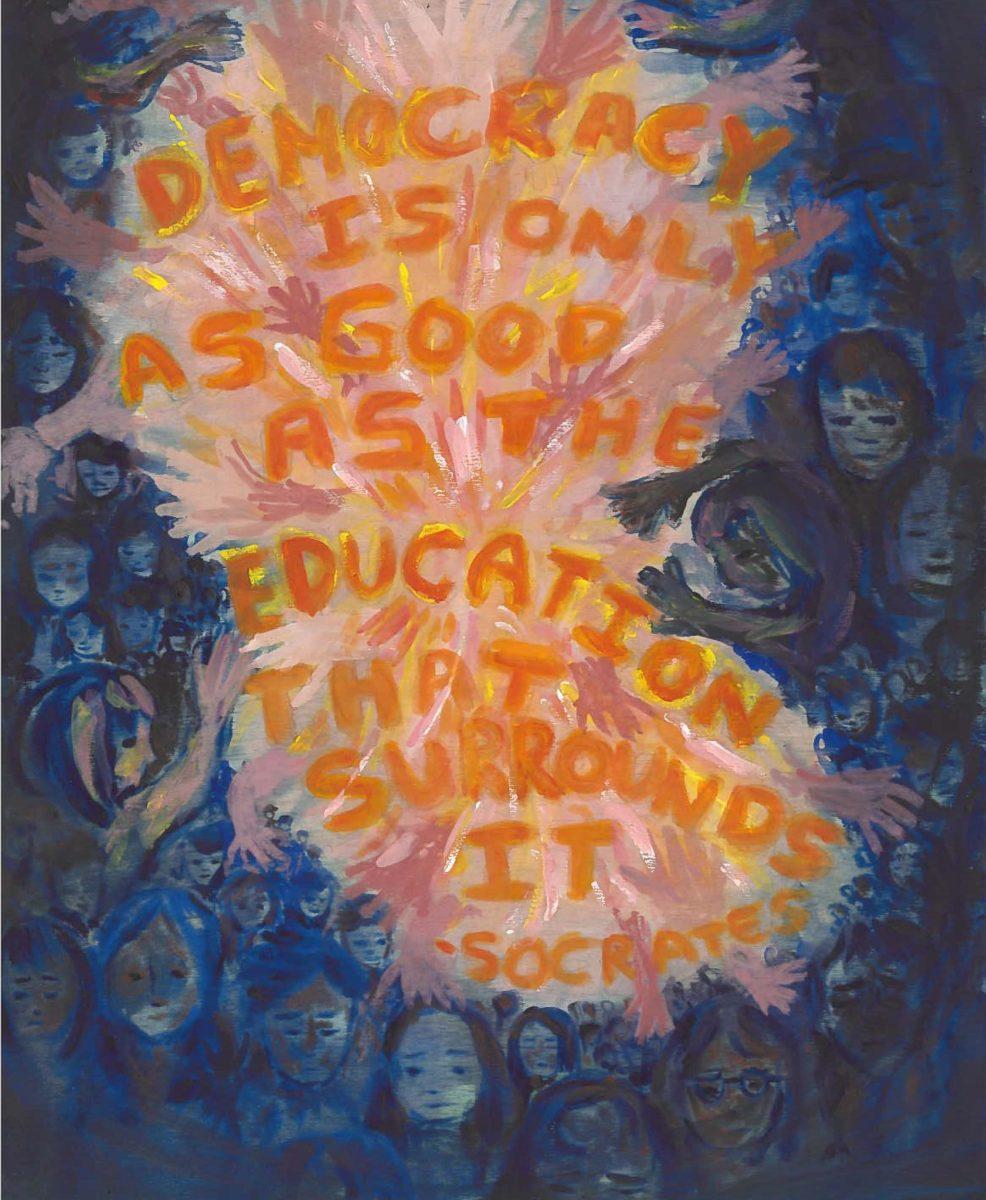 DEMOCRACY
IS ONLY
AS GOOD
AS THE
EDUCATION
THAT
SURROUNDS
IT
-SOCRATES